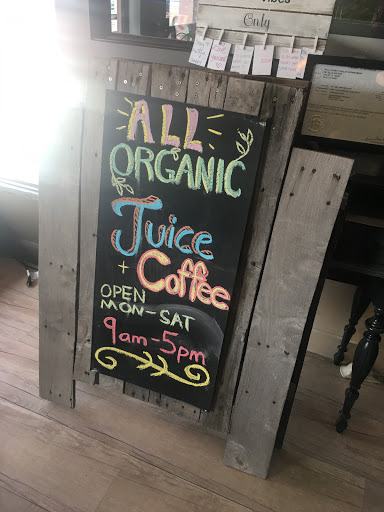 Only
ALL
ORGANIC
Juice
+ Coffee
OPEN
MON-SAT
9am-5pm